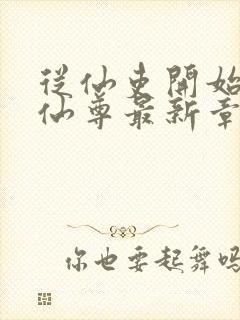 從仙吏開始
仙尊最新章
你也要起舞嗎